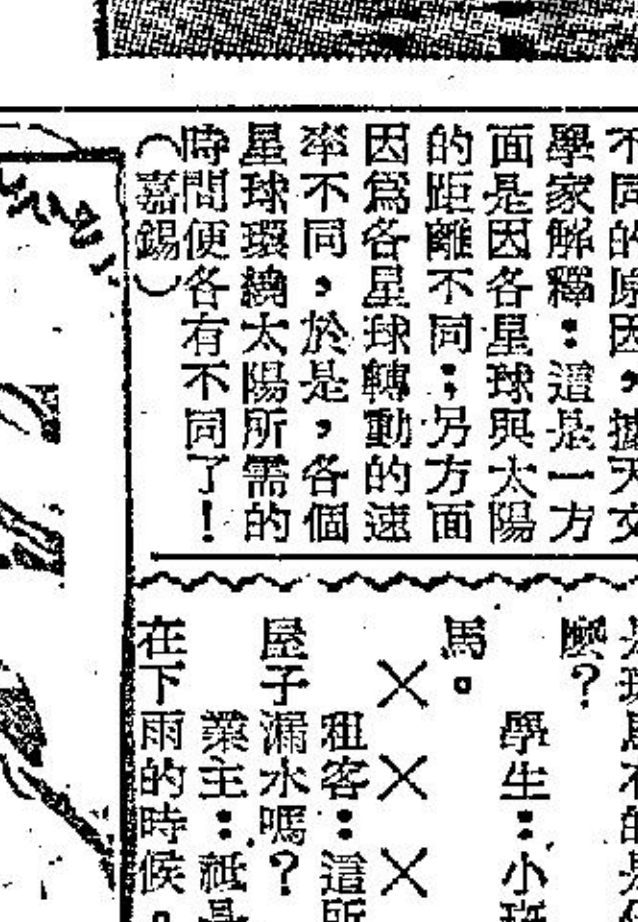 不同的原因，據天文
學家解釋：這是一方
面是因各星球與太陽
的距離不同；另方面
因爲各星球轉動的速
率不同，於是，各個
星球環繞太陽所需的
時間便各有不同了！
（嘉錫）
麼？
學生：小斑
馬。
×××
租客：這所
屋子漏水嗎？
業主：祇是
在下雨的時候。